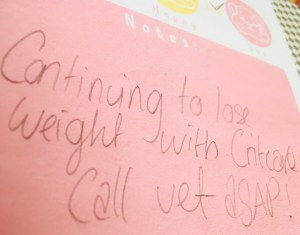 Notes!
Continuing to lose
weight with Critcare
Call vet ASAP!